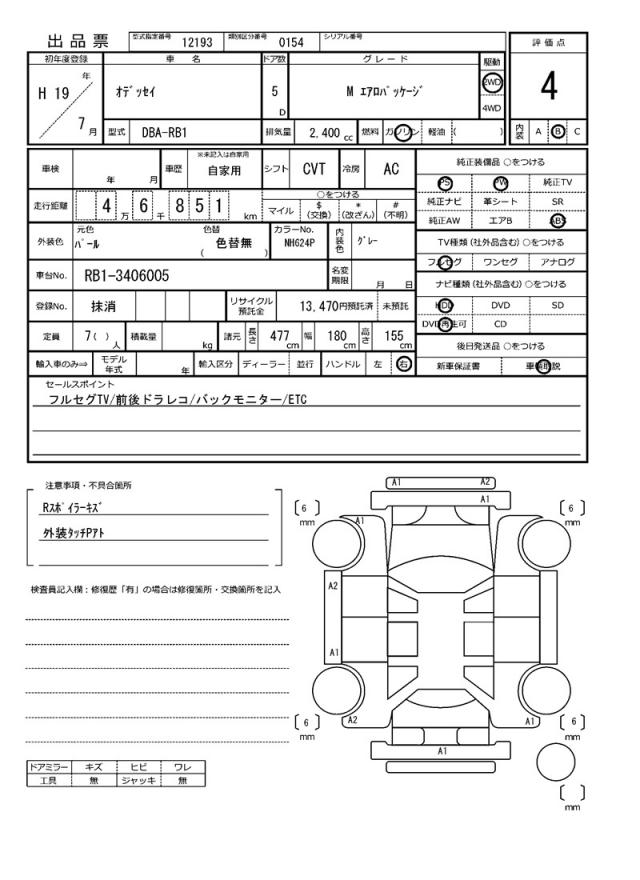 出品票
型式指定番号 12193 類別区分番号 0154 シリアル番号
評価点
4
内装 A B C
初年度登録 車名 ドア数 グレード 駆動
H 19 年 7 月
オデッセイ
5 D
M エアロパッケージ
2WD
4WD
型式 DBA-RB1 排気量 2,400 cc 燃料 ガソリン 軽油 ( )
車検 年 月 車歴 ※未記入は自家用 自家用 シフト CVT 冷房 AC
走行距離 4 万 6 千 8 5 1 km
○をつける
マイル $(交換) *(改ざん) #(不明)
外装色 元色 パール 色替 ( 色替無 ) カラーNo. NH624P 内装色 グレー
車台No. RB1-3406005 名変期限 月 日
登録No. 抹消 リサイクル預託金 13,470円預託済 未預託
定員 7( )人 積載量 kg 諸元 長さ 477cm 幅 180cm 高さ 155cm
輸入車のみ⇒ モデル年式 年 輸入区分 ディーラー 並行 ハンドル 左 右
純正装備品 ○をつける
PS PW 純正TV
純正ナビ 革シート SR
純正AW エアB ABS
TV種類(社外品含む)○をつける
フルセグ ワンセグ アナログ
ナビ種類(社外品含む)○をつける
HDD DVD SD
DVD再生可 CD
後日発送品 ○をつける
新車保証書 車輌取説
セールスポイント
フルセグTV/前後ドラレコ/バックモニター/ETC
注意事項・不具合箇所
Rスポイラーキズ
外装タッチPアト
検査員記入欄：修復歴「有」の場合は修復箇所・交換箇所を記入
ドアミラー キズ ヒビ ワレ
工具 無 ジャッキ 無
A1 A2
A1
6 mm
6 mm
A1
A2
A1
6 mm
6 mm
A2 A1
A1
mm